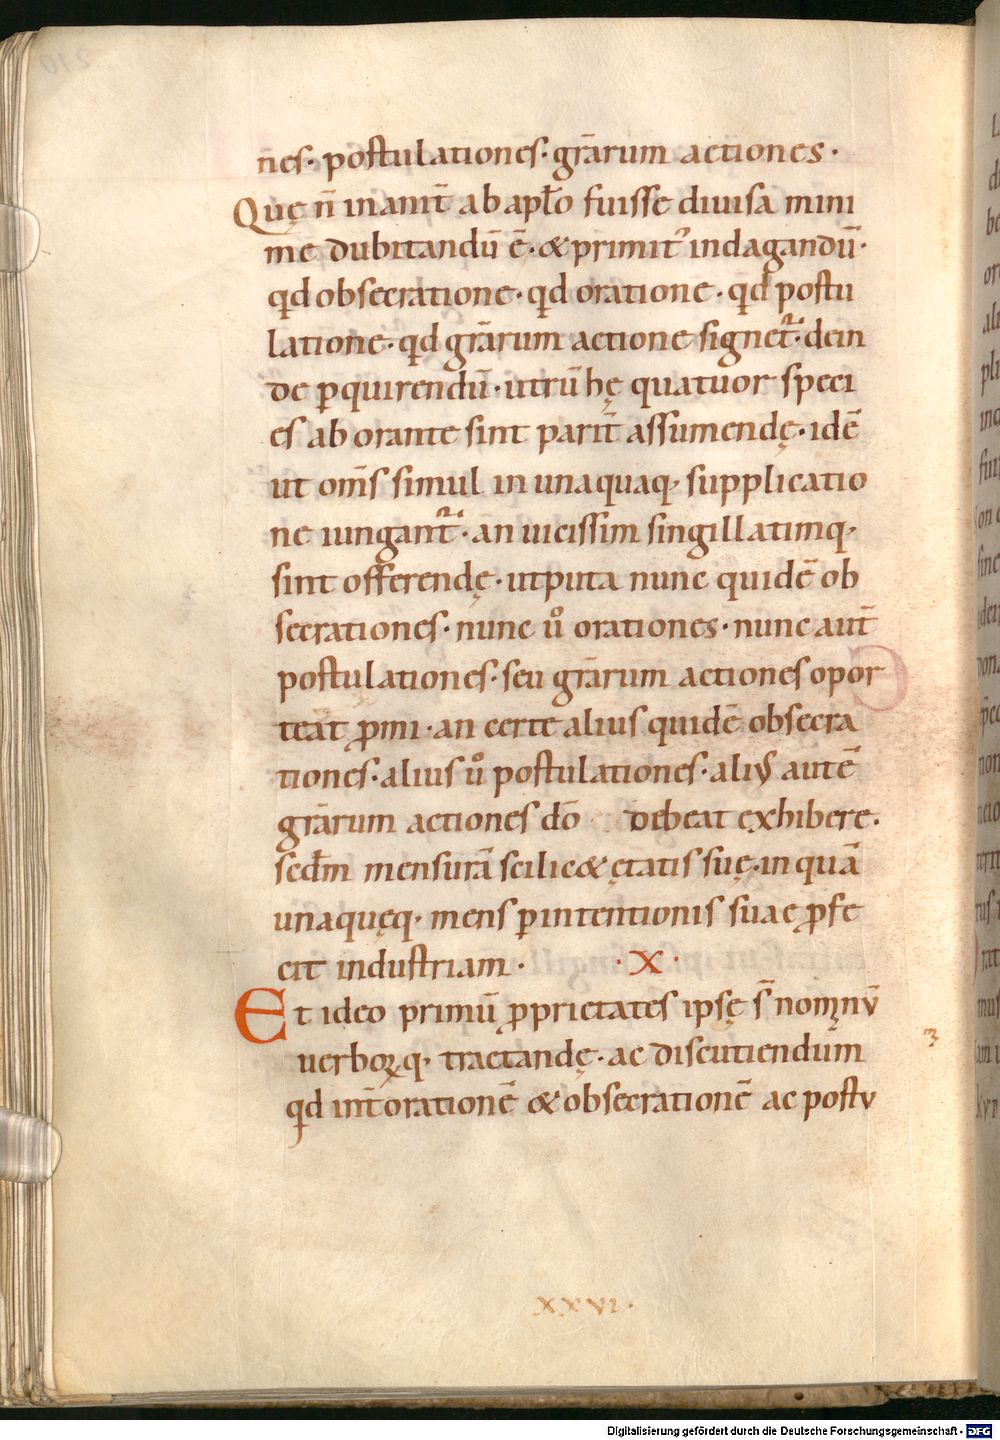 n̄es· postulationes· gr̄arum actiones·
Quę n̄ inanit̄ ab apło fuisse diuisa mini
me dubitandū ē· & primit᾿ indagandū·
qd obsecratione· qd oratione· qd postu
latione· qd gr̄arum actione signet᷑· dein
de ꝑquirendū· utrū hę quatuor speci
es ab orante sint parit̄ assumendę· idē
ut om̄s simul in unaquaq, supplicatio
ne iungant᷑· an uicissim singillatimq,
sint offerendę· utputa nunc quidē ob
secrationes· nunc uͦ orationes· nunc aut̄
postulationes· seu gr̄arum actiones opor
teat ꝓmi· an certe alius quidē obsecra
tiones· alius uͦ postulationes· alius autē
gr̄arum actiones dō debeat exhibere·
secd̄m mensurā scilic& ętatis suę· in quā
unaquęq, mens ꝑ intentionis suae ꝓfe
cit industriam· ·X·
Et ideo primū ꝓprietates ipsę s̄ nominū
uerboꝝq, tractandę· ac discutiendum
qd int̄ orationē & obsecrationē ac postu
XXVI·
Digitalisierung gefördert durch die Deutsche Forschungsgemeinschaft - DFG